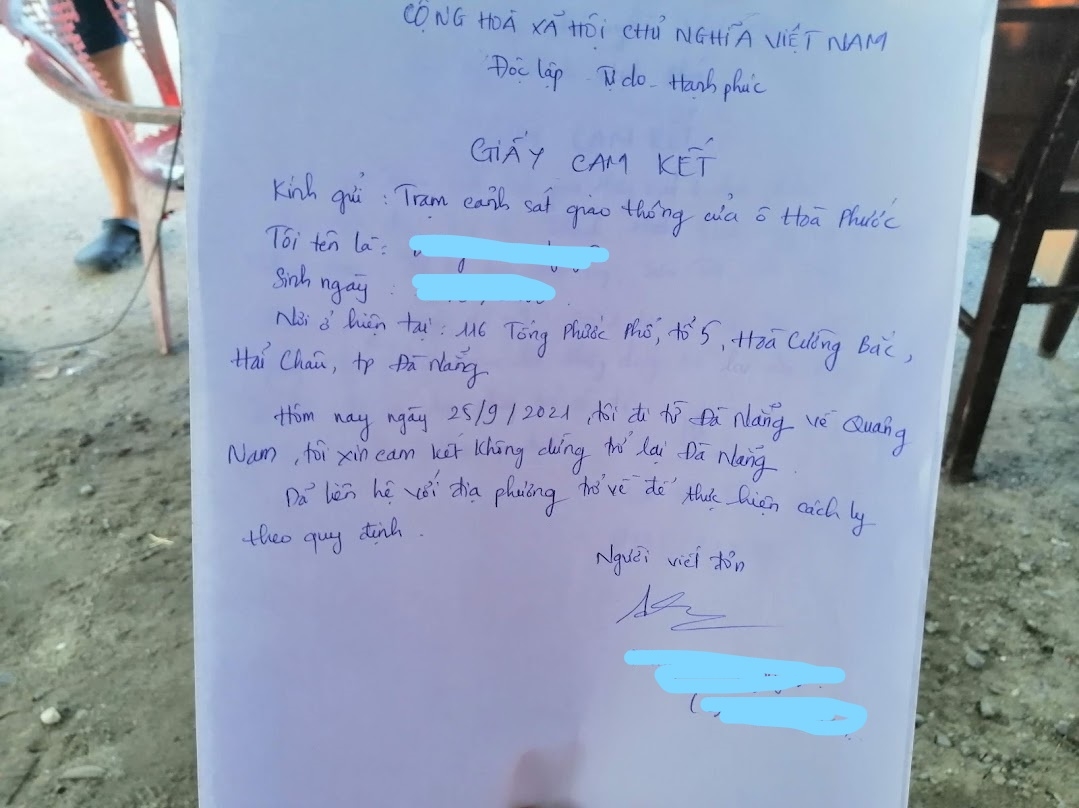 CỘNG HOÀ XÃ HỘI CHỦ NGHĨA VIỆT NAM
Độc lập - Tự do - Hạnh phúc
GIẤY CAM KẾT
Kính gửi : Trạm cảnh sát giao thông cửa ô Hoà Phước
Tôi tên là :
Sinh ngày :
Nơi ở hiện tại : 116 Tống Phước Phổ, tổ 5, Hoà Cường Bắc,
Hải Châu, tp Đà Nẵng
Hôm nay ngày 25/9/2021, tôi đi từ Đà Nẵng về Quảng
Nam, tôi xin cam kết không dừng trở lại Đà Nẵng.
Đã liên hệ với địa phương trở về để thực hiện cách ly
theo quy định.
Người viết đơn